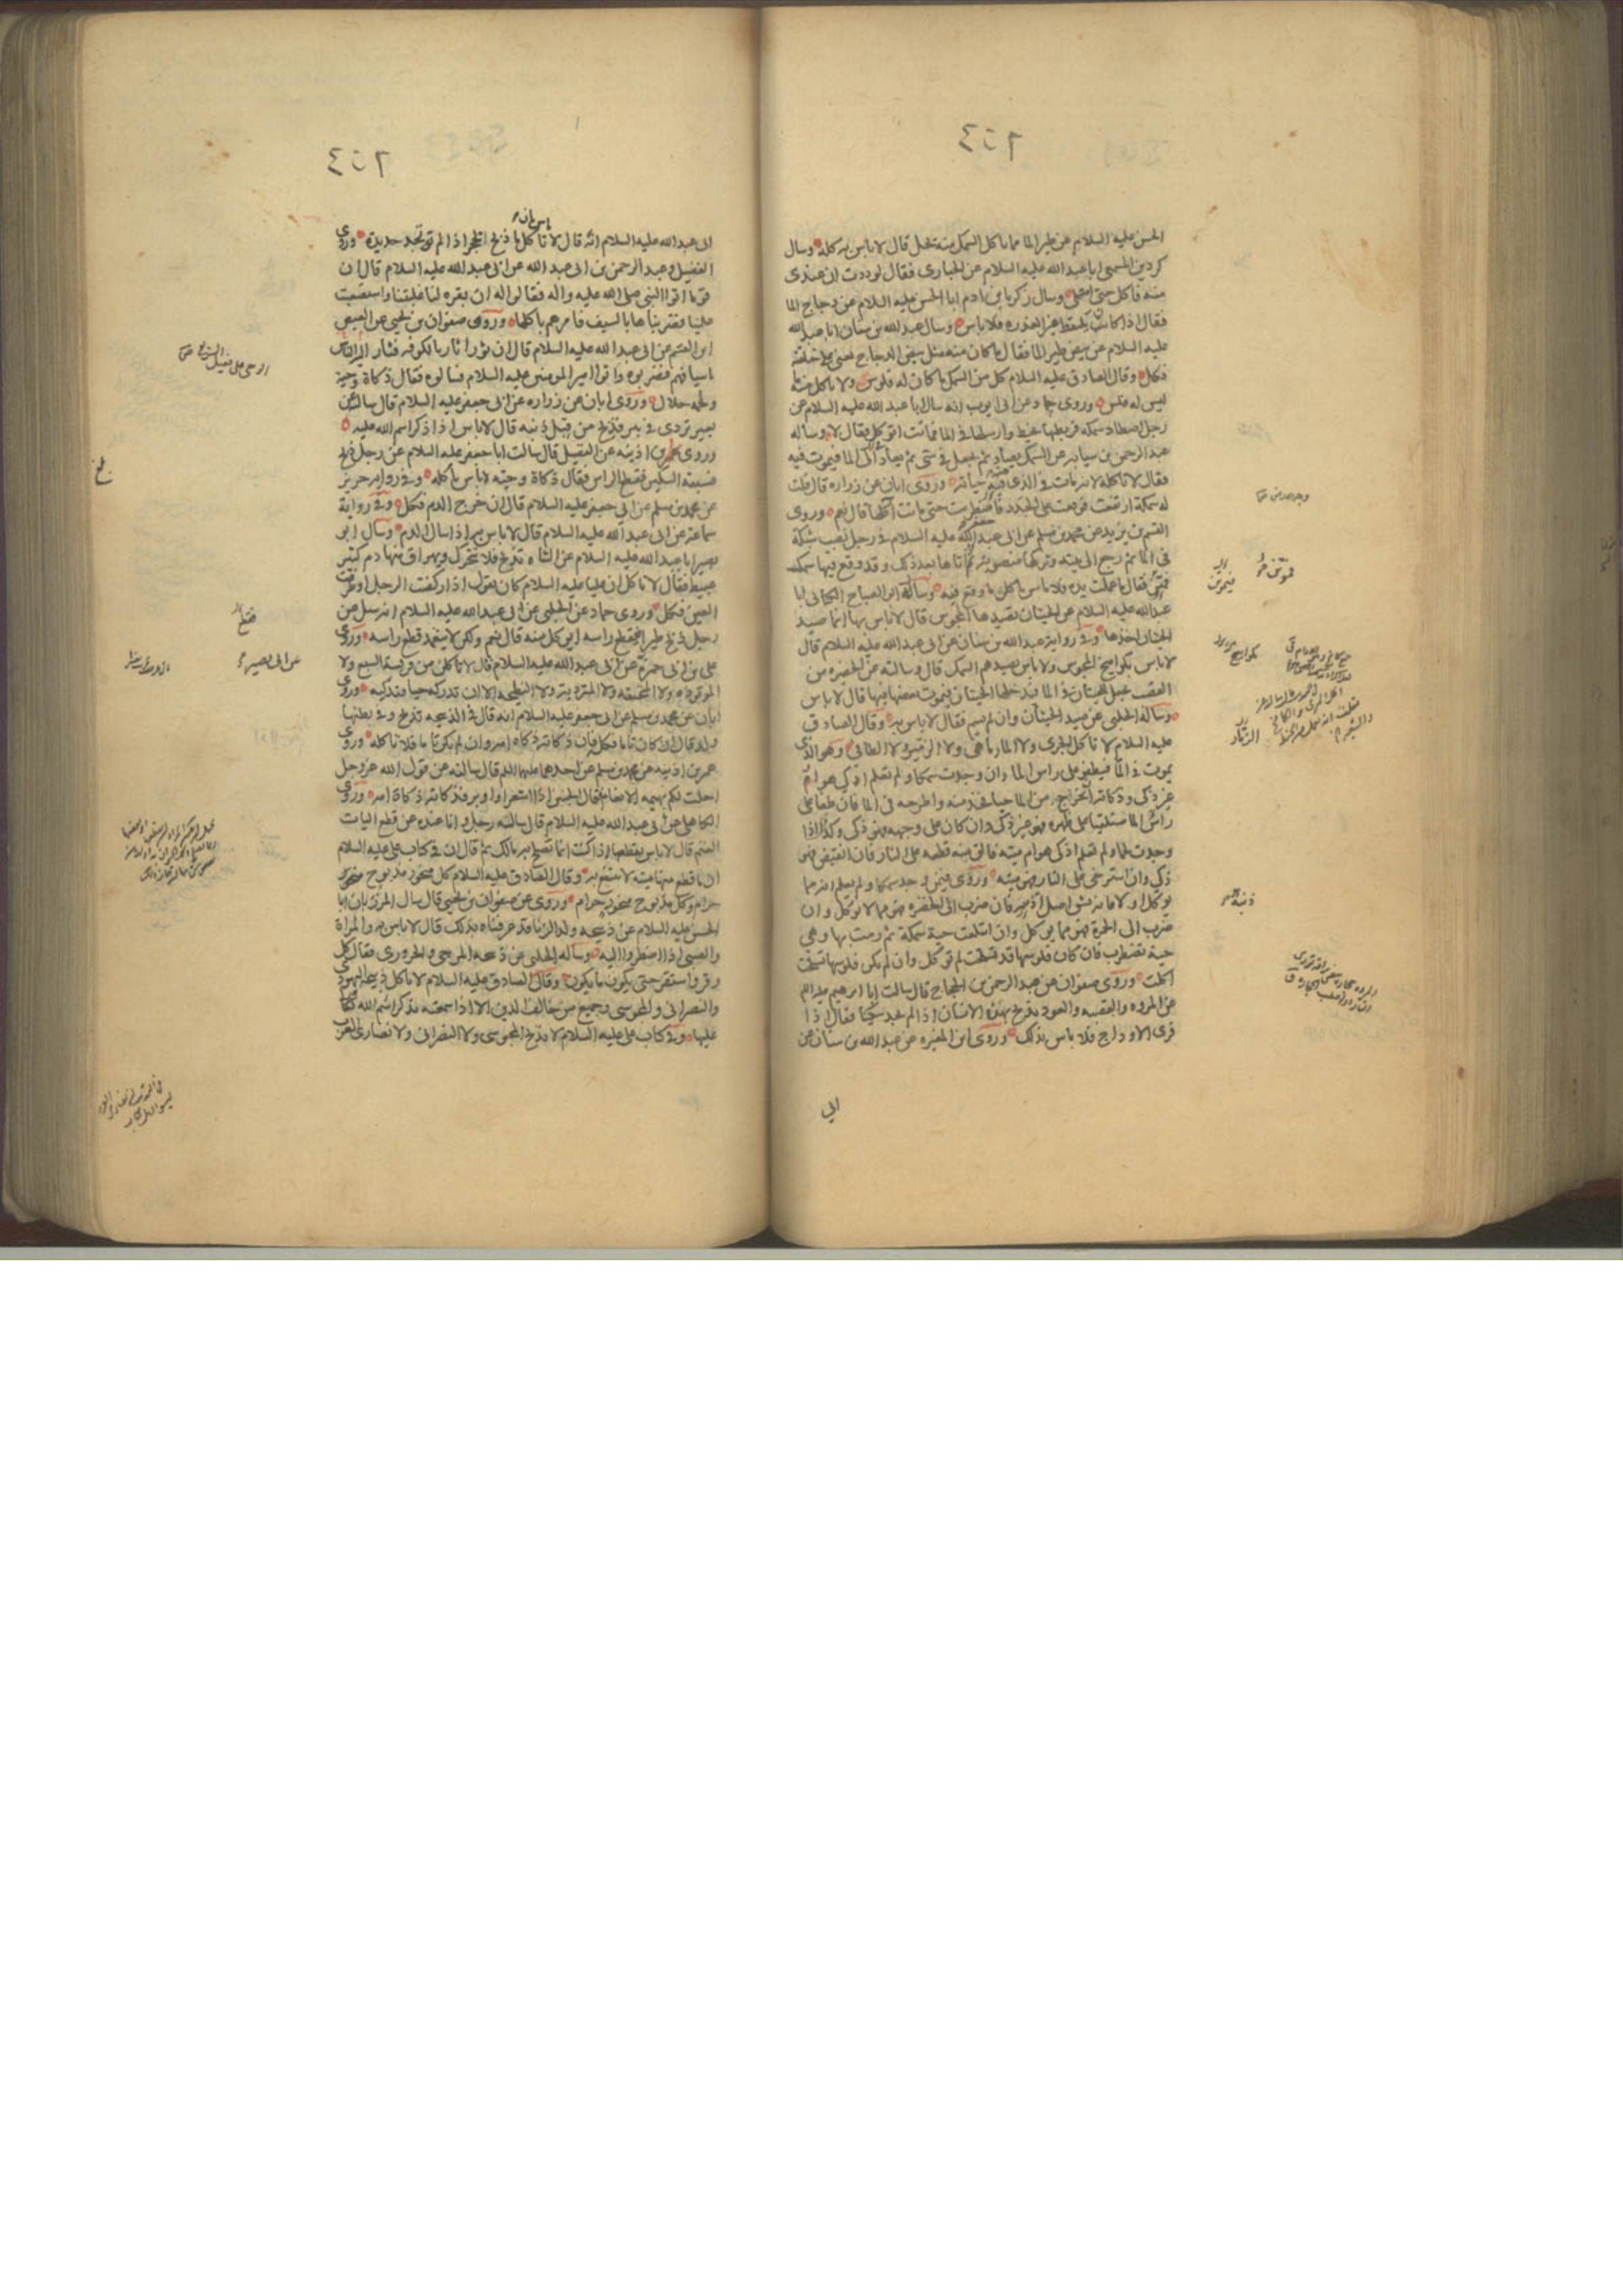 الحسن عليه السلام عن طير الما مما ياكل السمك منه يحل قال لا باس به كله وسال
كردين المسمعى ابا عبد الله عليه السلام عن الحبارى فقال لوددت ان عندى
منه فاكل حتى امتلى وسال زكريا بن ادم ابا الحسن عليه السلام عن دجاج الما
فقال اذا كان يلتقط غير العذره فلا باس وسال عبد الله بن سنان ابا عبد الله
عليه السلام عن بيض طير الما فقال ما كان منه مثل بيض الدجاج يعنى على خلقته
فكل وقال الصادق عليه السلام كل من السمك ما كان له فلوس ولا تاكل منه ما
ليس له فلس وروى حماد عن ابى ايوب انه سال ابا عبد الله عليه السلام عن
رجل اصطاد سمكه فربطها بخيط وارسلها فى الما فماتت اتوكل فقال لا وساله
عبد الرحمن بن سيابه عن السمك يصاد ثم يجعل فى شى ثم يعاد الى الما فيموت فيه
فقال لا تاكله لانه مات فى الذى فيه حياته وروى ابان عن زراره قال قلت
له سمكة ارتفعت فوقعت على الجدد فاضطربت حتى ماتت اكلها قال نعم وروى
القسم بن بريد عن محمد بن مسلم عن ابى عبد الله عليه السلام فى رجل نصب شبكة
فى الما ثم رجع الى بيته وتركها منصوبة ثم اتاها بعد ذلك وقد وقع فيها سمك
فقال ما عملت يده فلا باس باكل ما وقع فيه وساله ابو الصباح الكنانى ابا
عبد الله عليه السلام عن الحيتان يصيدها المجوس قال لا باس بها انما صيد
الحيتان اخذها وفى رواية عبد الله بن سنان عن ابى عبد الله عليه السلام قال
لا باس بكواميخ المجوس ولا باس بصيدهم السمك قال وسالته عن الحظيره من
القصب يجعل للحيتان فى الما فيدخلها الحيتان فيموت بعضها فيها قال لا باس
وساله الحلبى عن صيد الحيتان وان لم يسم فقال لا باس به وقال الصادق
عليه السلام لا تاكل الجرى ولا المارماهى ولا الزمير ولا الطافى وهو الذى
يموت فى الما فيطفو على راس الما وان وجدت سمكا ولم تعلم اذكى هو ام
غير ذكى وذكاته ان تخرج من الما حيا فخذ منه واطرحه فى الما فان طفا على
راس الما مستلقيا على ظهره فهو غير ذكى وان كان على وجهه فهو ذكى وكذا اذا
وجدت لحما ولم تعلم اذكى هو ام ميته فالق منه قطعه على النار فان انقبض فهو
ذكى وان استرخى على النار فهو ميته وروى فيمن وجد سمكا ولم يعلم انه مما
يوكل او لا فانه يشق اصل ذنبه فان ضرب الى الخضره فهو مما لا يوكل وان
ضرب الى الحمرة فهو مما يوكل وان ابتلعت حية سمكة ثم رمت بها وهى
حية تضطرب فان كان فلوسها قد تسلخت لم توكل وان لم يكن فلوسها تسلخت
اكلت وروى صفوان عن عبد الرحمن بن الحجاج قال سالت ابا ابرهيم عليه السلام
عن المروه والقصبه والعود يذبح بهن الانسان اذا لم يجد سكينا فقال اذا
فرى الاوداج فلا باس بذلك وروى ابن المغيره عن عبد الله بن سنان عن
الى
ابى عبد الله عليه السلام انه قال لا باس بان تاكل ما ذبح بحجر اذا لم تجد حديدة وروى
الفضيل وعبد الرحمن بن ابى عبد الله عن ابى عبد الله عليه السلام قال ان
قوما اتوا النبى صلى الله عليه واله فقالوا له ان بقره لنا غلبتنا واستصعبت
علينا فضربناها بالسيف فامرهم باكلها وروى صفوان بن يحيى عن العيص
ابن القسم عن ابى عبد الله عليه السلام قال ان ثورا ثار بالكوفه فثار اليه الناس
باسيافهم فضربوه واتوا امير المومنين عليه السلام فسالوه فقال ذكاة وحية
ولحمه حلال وروى ابان عن زراره عن ابى جعفر عليه السلام قال سالته عن
بعير تردى فى بير فذبح من قبل ذنبه قال لا باس اذا ذكر اسم الله عليه
وروى عمر بن اذينه عن الفضيل قال سالت ابا جعفر عليه السلام عن رجل ذبح
فسبقته السكين فقطع الراس فقال ذكاة وحيه لا باس باكله وفى رواية حريز
عن محمد بن مسلم عن ابى جعفر عليه السلام قال ان خرج الدم فكل وفى رواية
سماعة عن ابى عبد الله عليه السلام قال لا باس به اذا سال الدم وسال ابو
بصير ابا عبد الله عليه السلام عن الشاه تذبح فلا تتحرك ويهراق منها دم كثير
عبيط فقال لا تاكل ان عليا عليه السلام كان يقول اذا ركضت الرجل او طرفت
العين فكل وروى حماد عن الحلبى عن ابى عبد الله عليه السلام انه سئل عن
رجل ذبح طيرا فقطع راسه ايوكل منه قال نعم ولكن لا يتعمد قطع راسه وروى
على بن ابى حمزة عن ابى عبد الله عليه السلام قال لا تاكل من فريسة السبع ولا
الموقوذه ولا المنخنقه ولا المترديه ولا النطيحه الا ان تدركه حيا فتذكيه وروى
ابان عن محمد بن مسلم عن ابى جعفر عليه السلام انه قال فى الذبيحه تذبح وفى بطنها
ولد قال ان كان تاما فكله فان ذكاته ذكاة امه وان لم يكن تاما فلا تاكله وروى
عمر بن اذينه عن محمد بن مسلم عن احدهما عليهما السلم قال سالته عن قول الله عز وجل
احلت لكم بهيمه الانعام فقال الجنين اذا اشعر او اوبر فذكاته ذكاة امه وروى
الكاهلى عن ابى عبد الله عليه السلام قال سالته رجل وانا عنده عن قطع اليات
الغنم قال لا باس بقطعها اذا كنت انما تصلح به مالك ثم قال ان فى كتاب على عليه السلام
ان ما قطع منها ميته لا ينتفع به وقال الصادق عليه السلام كل منحور مذبوح
حرام وكل مذبوح منحور حرام وروى عن صفوان بن يحيى قال سال المرزبان ابا
الحسن عليه السلام عن ذبيحه ولد الزنا قد عرفناه بذلك قال لا باس به والمراة
والصبى اذا اضطروا اليه وساله الحلبى عن ذبيحه المرجى والحرورى فقال كل
وقر واستقر حتى يكون ما يكون وقال الصادق عليه السلام لا تاكل ذبيحه اليهودى
والنصرانى والمجوسى وجميع من خالف الدين الا اذا سمعته يذكر اسم الله
عليها وفى كتاب على عليه السلام لا يذبح المجوسى ولا النصرانى ولا نصارى العرب
عن ابى بصير